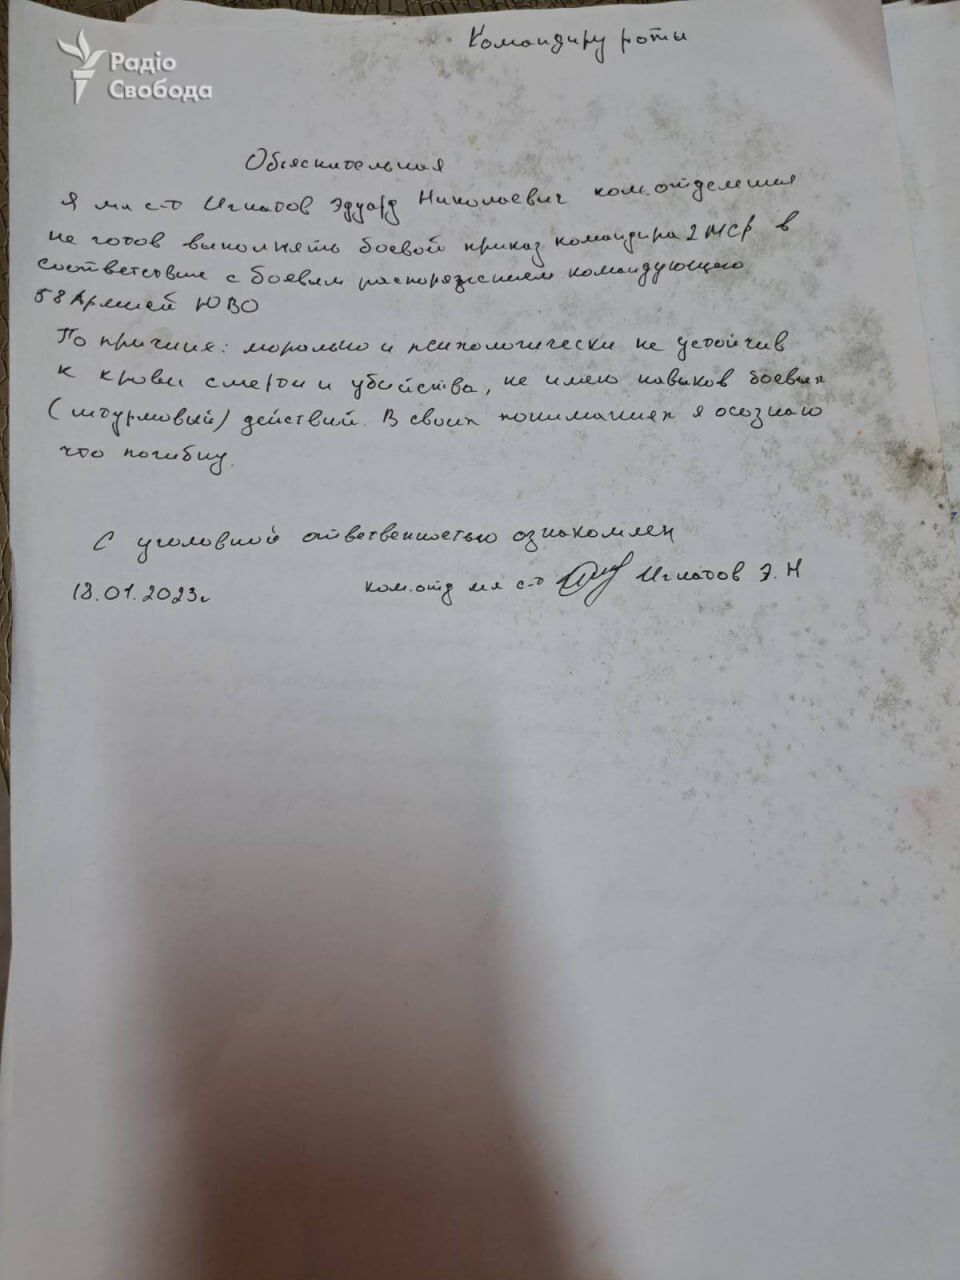 Радіо
Свобода
Командиру роты
Объяснительная
Я мл с-т Игнатов Эдуард Николаевич ком.отделения
не готов выполнять боевой приказ командира 2 МСР в
соответствие с боевым распоряжением командующего
58 Армией ЮВО
По причине: морально и психологически не устойчив
к крови смерти и убийства, не имею навыков боевых
(штурмовый) действий. В своих пониманиях я осознаю
что погибну.
С уголовной отвественностью ознакомлен
18.01.2023г
ком.отд мл с-т Игнатов Э. Н